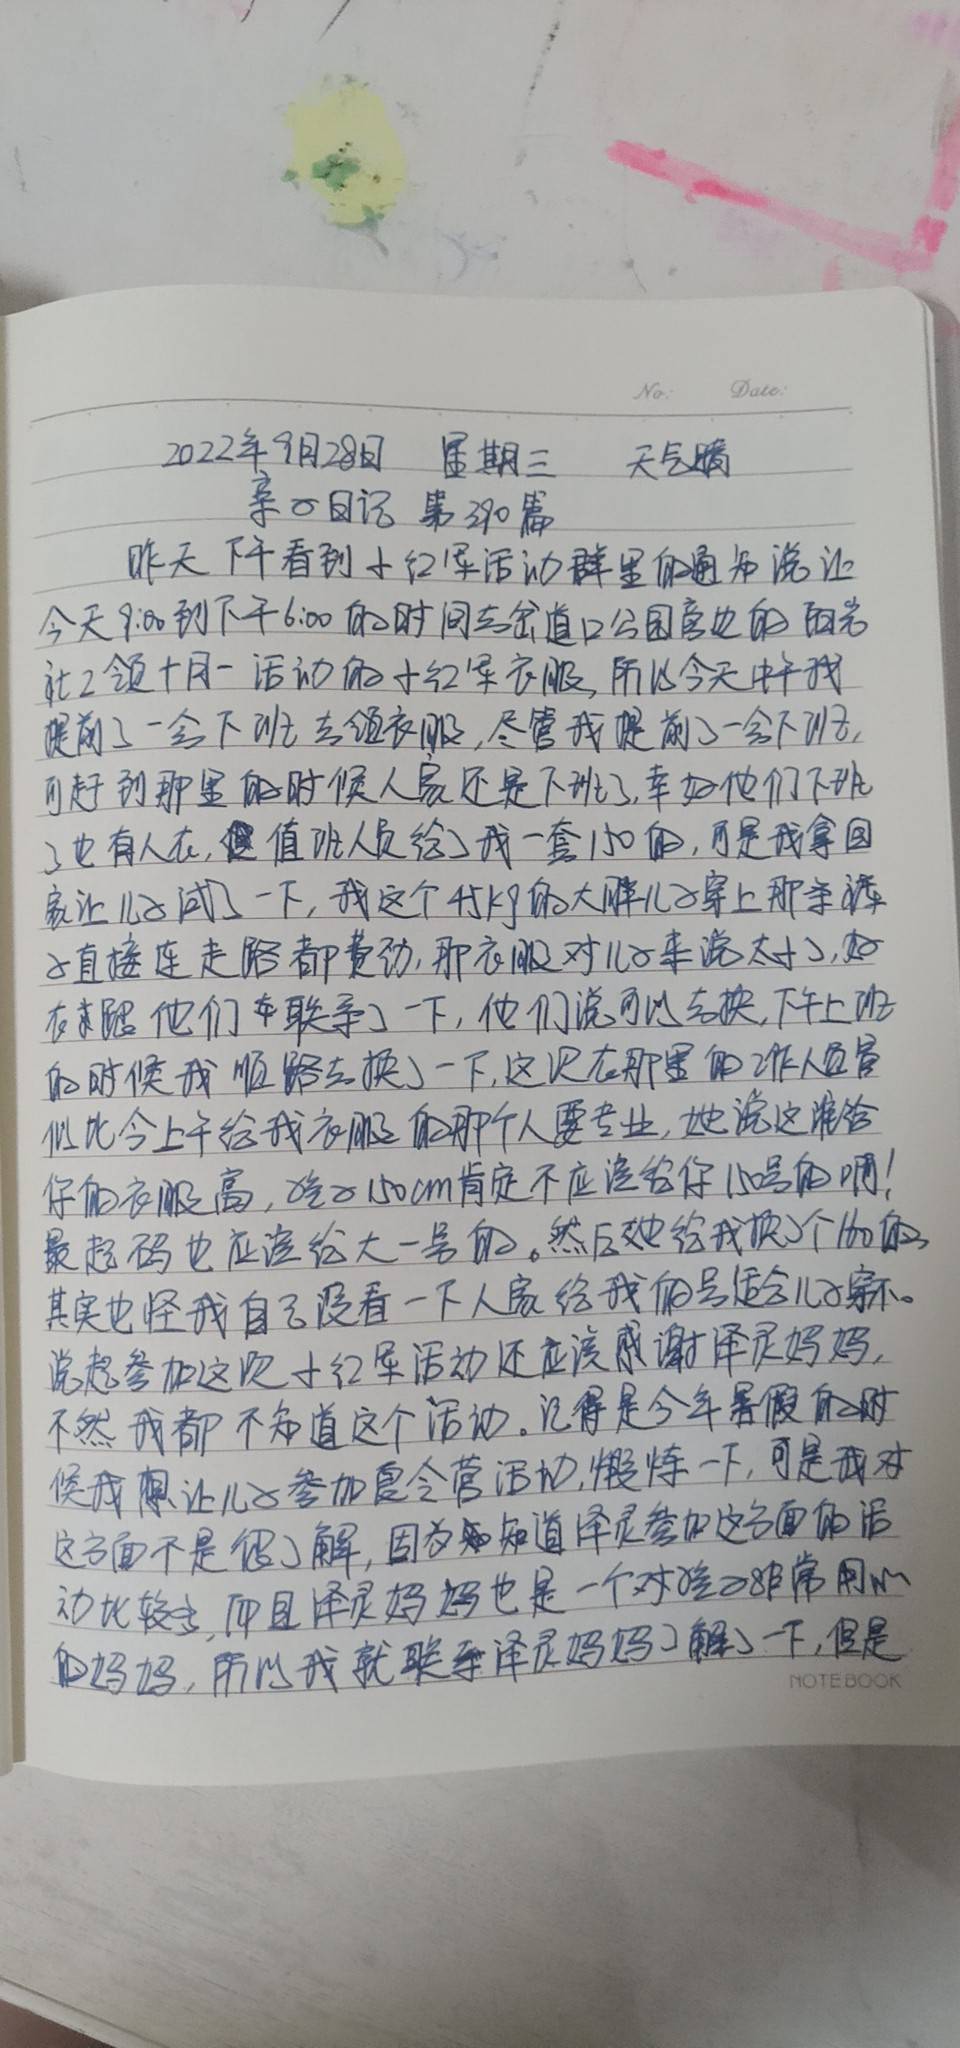 No: Date:
2022年9月28日 星期三 天气晴
亲子日记 第390篇
昨天下午看到小红军活动群里的通知说让
今天9:00到下午6:00的时间去岔道口公园旁边的阳光
社工领十月一活动的小红军衣服,所以今天中午我
提前了一会下班去领衣服,尽管我提前了一会下班,
可赶到那里的时候人家还是下班了,幸好他们下班
了也有人在,值班人员给了我一套150的,可是我拿回
家让儿子试了一下,我这个45kg的大胖儿子穿上那条裤
子直接连走路都费劲,那衣服对儿子来说太小了,好
在来跟他们联系了一下,他们说可以去换,下午上班
的时候我顺路去换了一下,这次在那里的工作人员貌
似比今上午给我衣服的那个人要专业,她说这谁给
你的衣服高,孩子150cm肯定不应该给你150号的啊!
最起码也应该给大一号的。然后她给我换了个160的,
其实也怪我自己没看一下人家给我的号适合儿子穿不。
说起参加这次小红军活动还应该感谢泽灵妈妈,
不然我都不知道这个活动。记得是今年暑假的时
候我想让儿子参加夏令营活动,锻炼一下,可是我对
这方面不是很了解,因为知道泽灵参加这方面的活
动比较多,而且泽灵妈妈也是一个对孩子非常用心
的妈妈,所以我就联系泽灵妈妈了解了一下,但是
NOTEBOOK